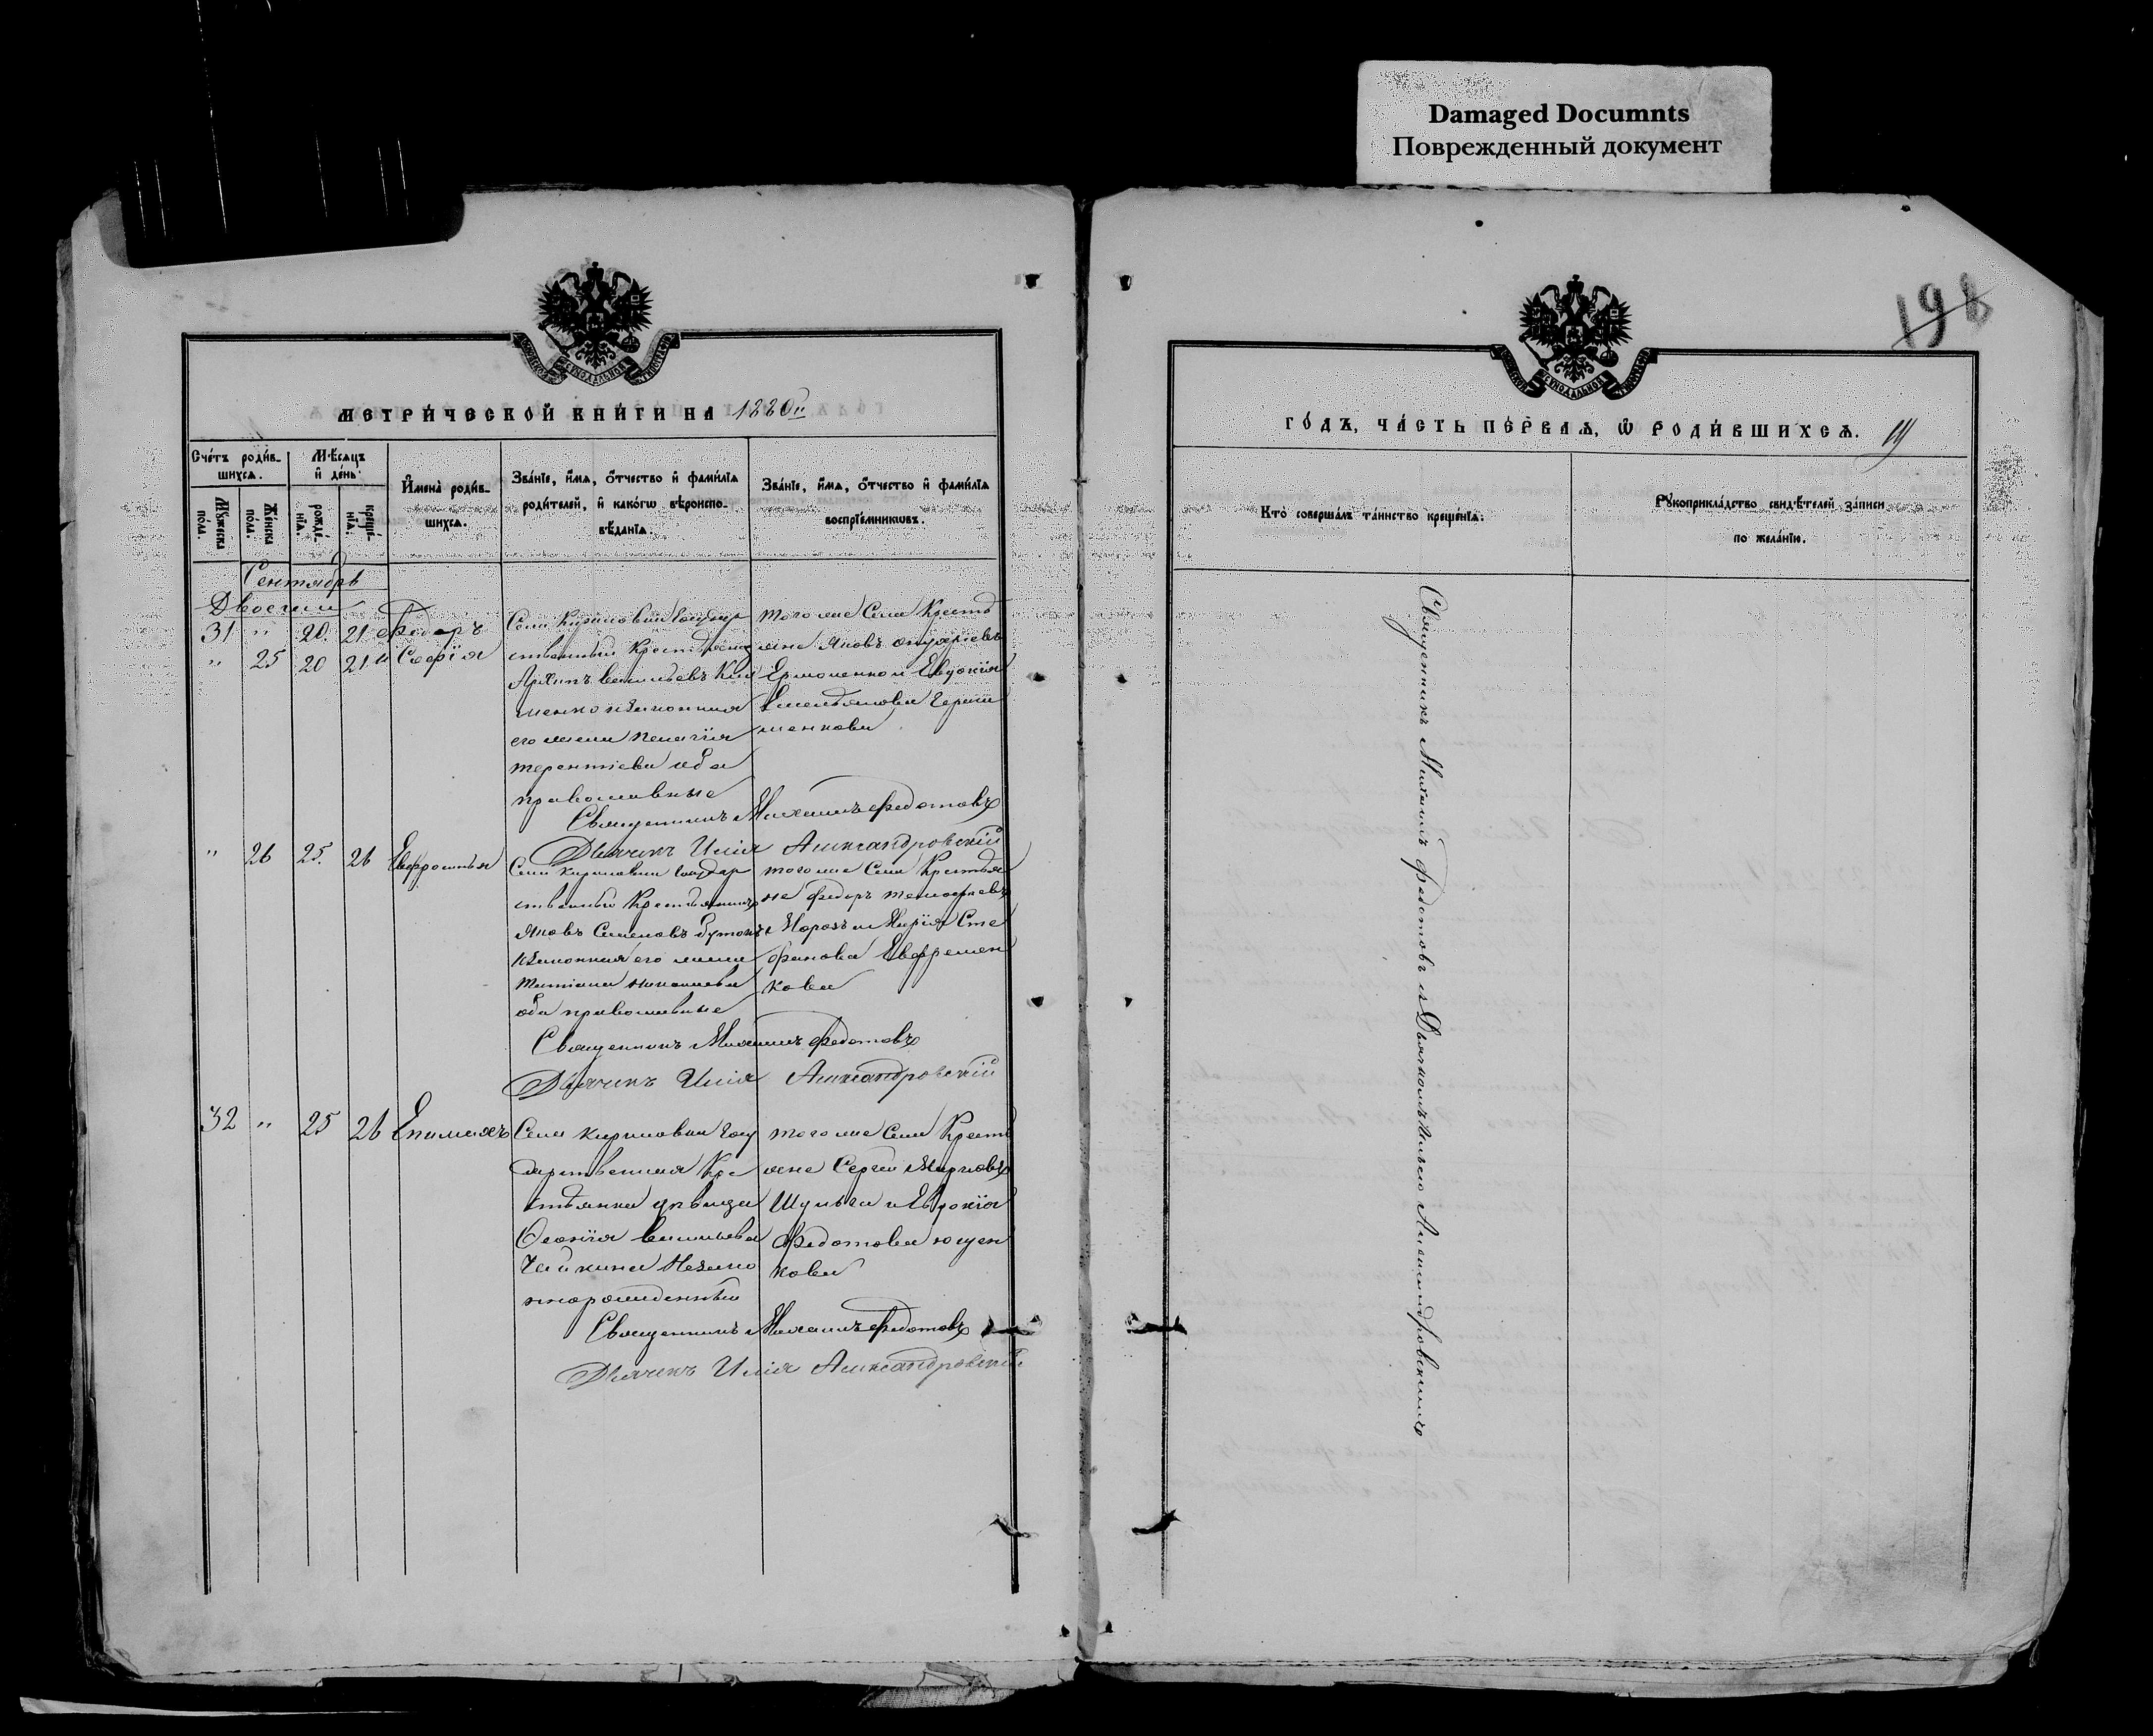 Damaged Documnts
Поврежденный документ
198
МЕТРИ́ЧЕСКОЙ КНИ́ГИ НА 1880й
Сче́тъ роди́в-
шихсѧ.
Мѣ́сѧцъ
и҆ де́нь.
Мꙋ́жеска по́ла.
Же́нска по́ла.
рожде́нїѧ.
креще́нїѧ.
И҆мена̀ роди́в-
шихсѧ.
Зва́нїе, и҆́мѧ, ѻ҆́тчество и҆ фами́лїѧ
роди́телей, и҆ како́гѡ вѣроиспо-
вѣ́данїѧ.
Зва́нїе, и҆́мѧ, ѻ҆́тчество и҆ фами́лїѧ
воспрїе́мникѡвъ.
Сентябрь
Двоегни
31 " 20. 21 Ѳедоръ
" 25 20 21 София
Села Кириловки Государ
ственный Крестьянинъ
Архипъ Васильевъ Кли
менко и законная
его жена Пелагия
Терентиева оба
православные
того же Села Крестья
не Яковъ
Ермоленко и Евдокия
Емельянова
Священникъ Михаилъ Федотовъ
Дьячекъ Илия Александровский
" 26 25. 26 Евфросиния
Села Кириловки Государ
ственный Крестьянинъ
Яковъ Семеновъ Бутокъ
и законная его жена
Татиана
оба православные
того же Села Крестья
не Федоръ Тимофиевъ
Морозъ и Мария Сте
фанова Евфремен
кова
Священникъ Михаилъ Федотовъ
Дьячекъ Илия Александровский
32 " 25 26 Епимахъ
Села Кириловки Госу
дарственная Кре
стьянка девица
Феония Васильева
Чайкина Незако
норожденный
того же Села Крестья
не Сергей Марковъ
Шульга и Евдокия
Федотова Ющен
кова
Священникъ Михаилъ Федотовъ
Дьячекъ Илия Александровский
ГО́ДЪ, ЧА́СТЬ ПЕ́РВАѦ, Ѡ҆ РОДИ́ВШИХСѦ.
Кто̀ соверша́лъ та́инство креще́нїѧ.
Рꙋкоприкла́дство свидѣ́телей за́писи
по жела́нїю.
Священникъ Михаилъ Федотовъ с Дьячкомъ Илиею Александровскимъ